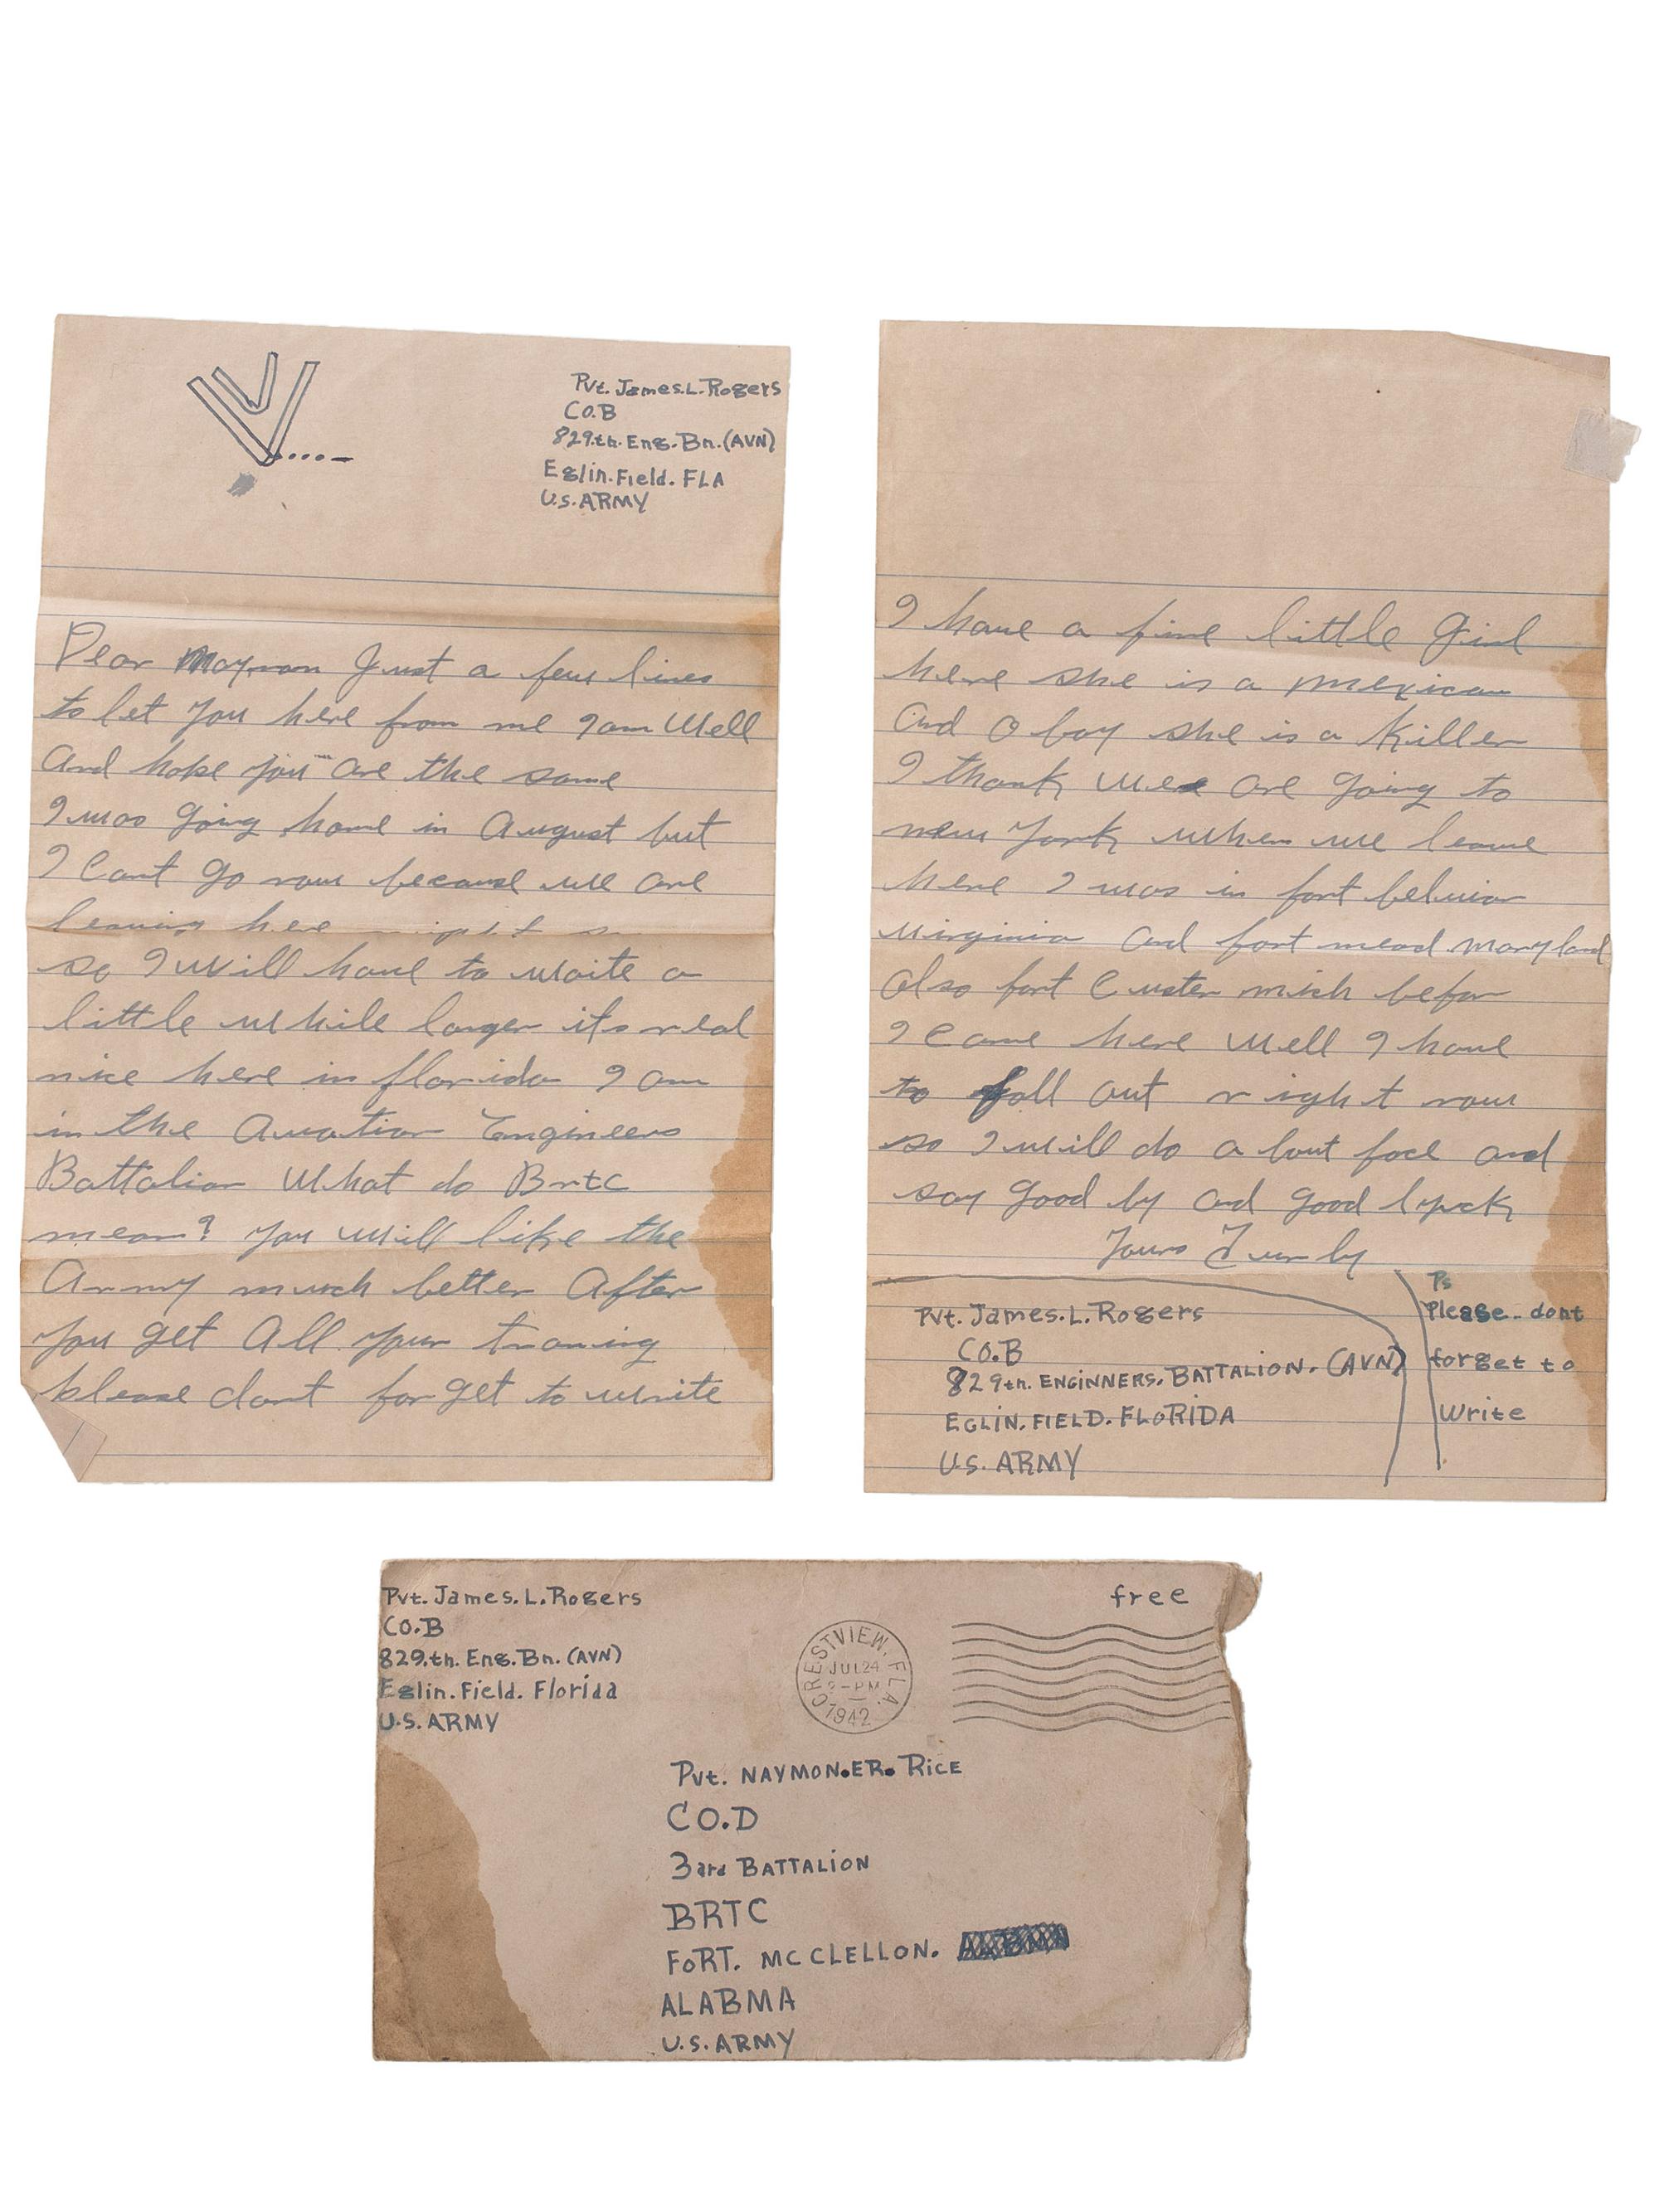 Pvt. James.L.Rogers
CO.B
829.th. Eng. Bn. (AVN)
Eglin. Field. FLA
U.S. ARMY
V....—
Dear Naymon Just a few lines
to let you here from me I am Well
And hope you are the same
I was going home in August but
I Cant go now because we are
leaving here
so I will have to waite a
little while longer its real
nice here in florida I am
in the Avation Engineers
Battalion What do Brtc
mean? you will like the
Army much better After
you get All your traning
please dont forget to write
I have a fine little Girl
here she is a mexican
And O boy she is a Killer
I thank we are going to
new York when we leave
here I was in fort belvior
virginia and fort mead maryland
also fort Custer mich befor
I Came here Well I have
to fall out right now
so I will do a bout face and
say good by and good luck
Yours
Pvt. James. L. Rogers
CO.B
829th. ENGINNERS. BATTALION. (AVN)
EGLIN. FIELD. FLORIDA
U.S. ARMY
Ps
Please dont
forget to
Write
Pvt. James. L. Rogers
CO.B
829.th. Eng. Bn. (AVN)
Eglin. Field. Florida
U.S. ARMY
free
CRESTVIEW, FLA.
JUL 24
PM
1942
Pvt. NAYMON.ER. RICE
CO.D
3ard BATTALION
BRTC
FORT. MCCLELLON.
ALABMA
U.S. ARMY